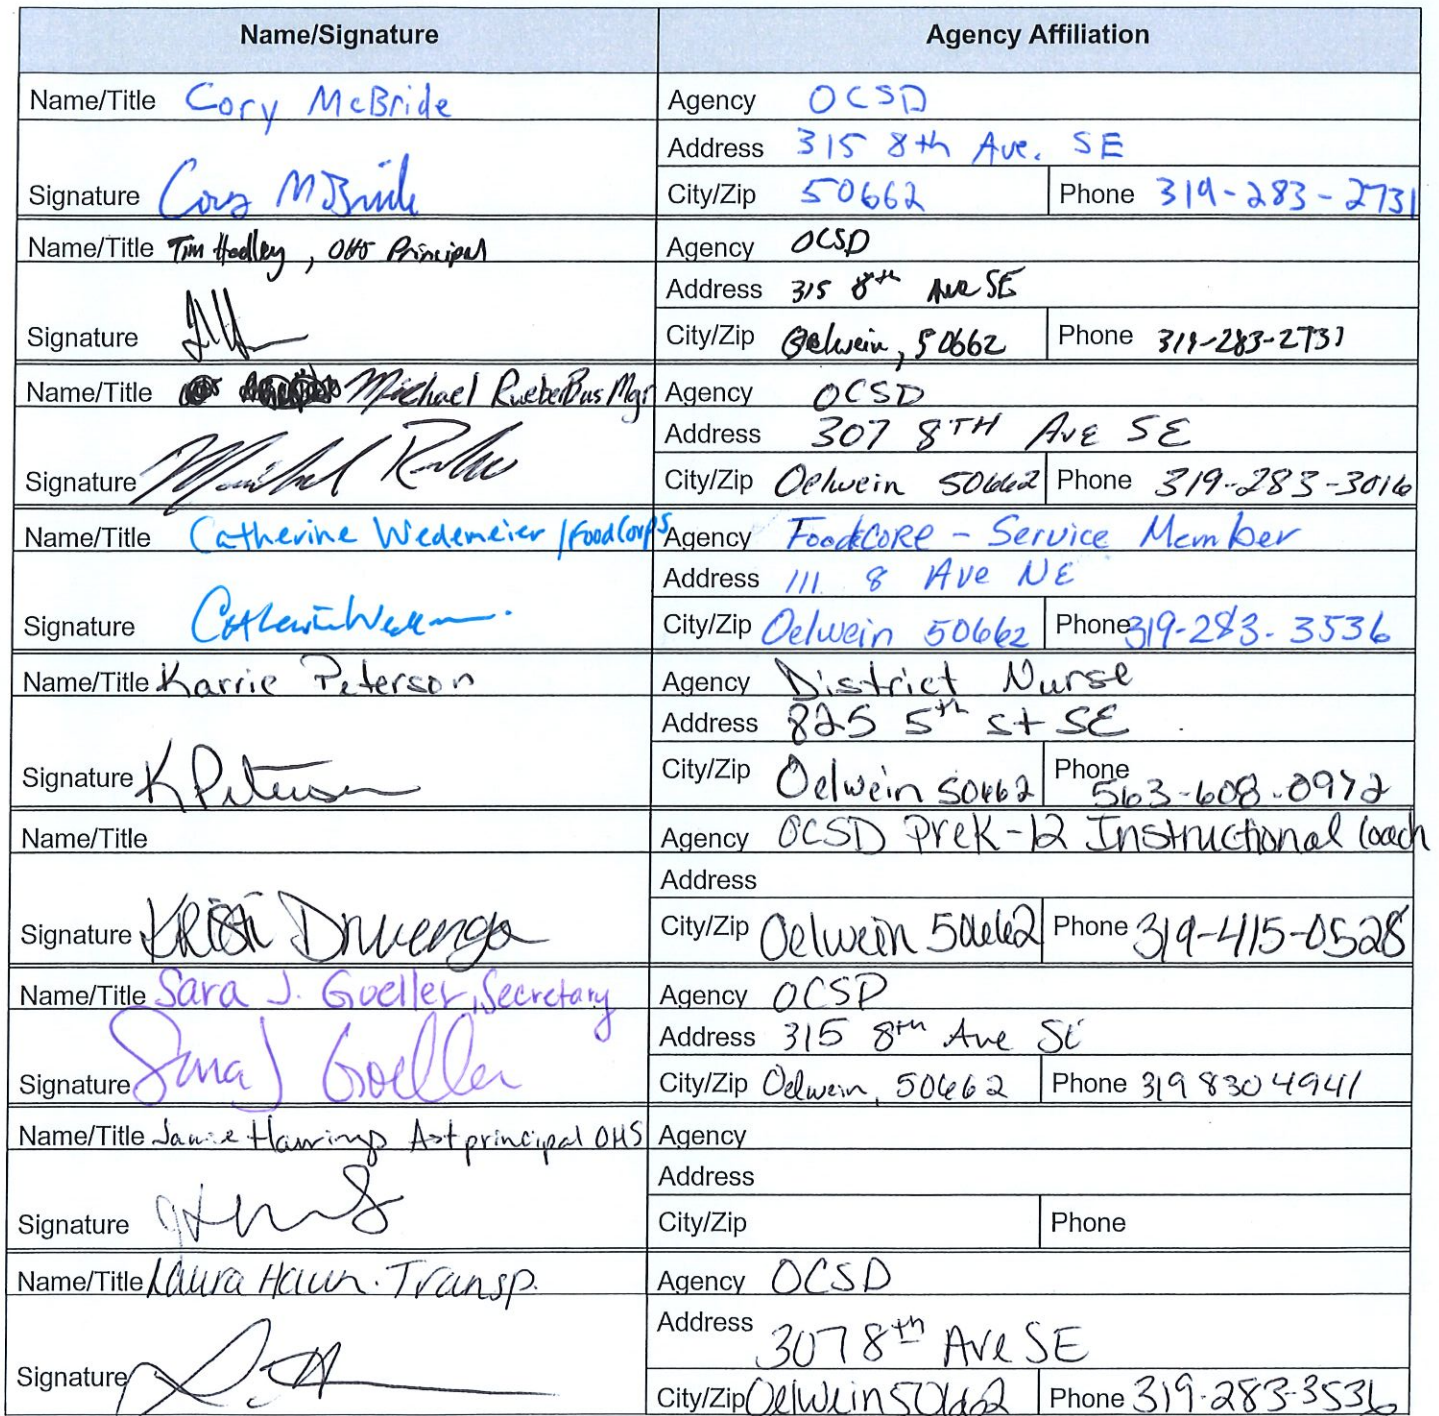 Name/Signature Agency Affiliation
Name/Title Cory McBride Agency OCSD
Address 315 8th Ave. SE
Signature Cory McBride City/Zip 50662 Phone 319-283-2731
Name/Title Tim Hadley, OHS Principal Agency OCSD
Address 315 8th Ave SE
Signature City/Zip Oelwein, 50662 Phone 319-283-2731
Name/Title Michael Rueber Bus Mgr Agency OCSD
Address 307 8TH Ave SE
Signature Michael Rueber City/Zip Oelwein 50662 Phone 319-283-3016
Name/Title Catherine Wedemeier / FoodCorps Agency FoodCORE - Service Member
Address 111 8 Ave NE
Signature City/Zip Oelwein 50662 Phone 319-283-3536
Name/Title Karrie Peterson Agency District Nurse
Address 825 5th St SE
Signature K Peterson City/Zip Oelwein 50662 Phone 563-608-0972
Name/Title Agency OCSD PreK-12 Instructional Coach
Address
Signature Kristi Druvenga City/Zip Oelwein 50662 Phone 319-415-0528
Name/Title Sara J. Goeller, Secretary Agency OCSD
Address 315 8th Ave SE
Signature Sara J Goeller City/Zip Oelwein, 50662 Phone 319 830 4941
Name/Title Jamie Hawrings Ast principal OHS Agency
Address
Signature City/Zip Phone
Name/Title Laura Haun. Transp. Agency OCSD
Address 307 8th Ave SE
Signature City/Zip Oelwein 50662 Phone 319-283-3536